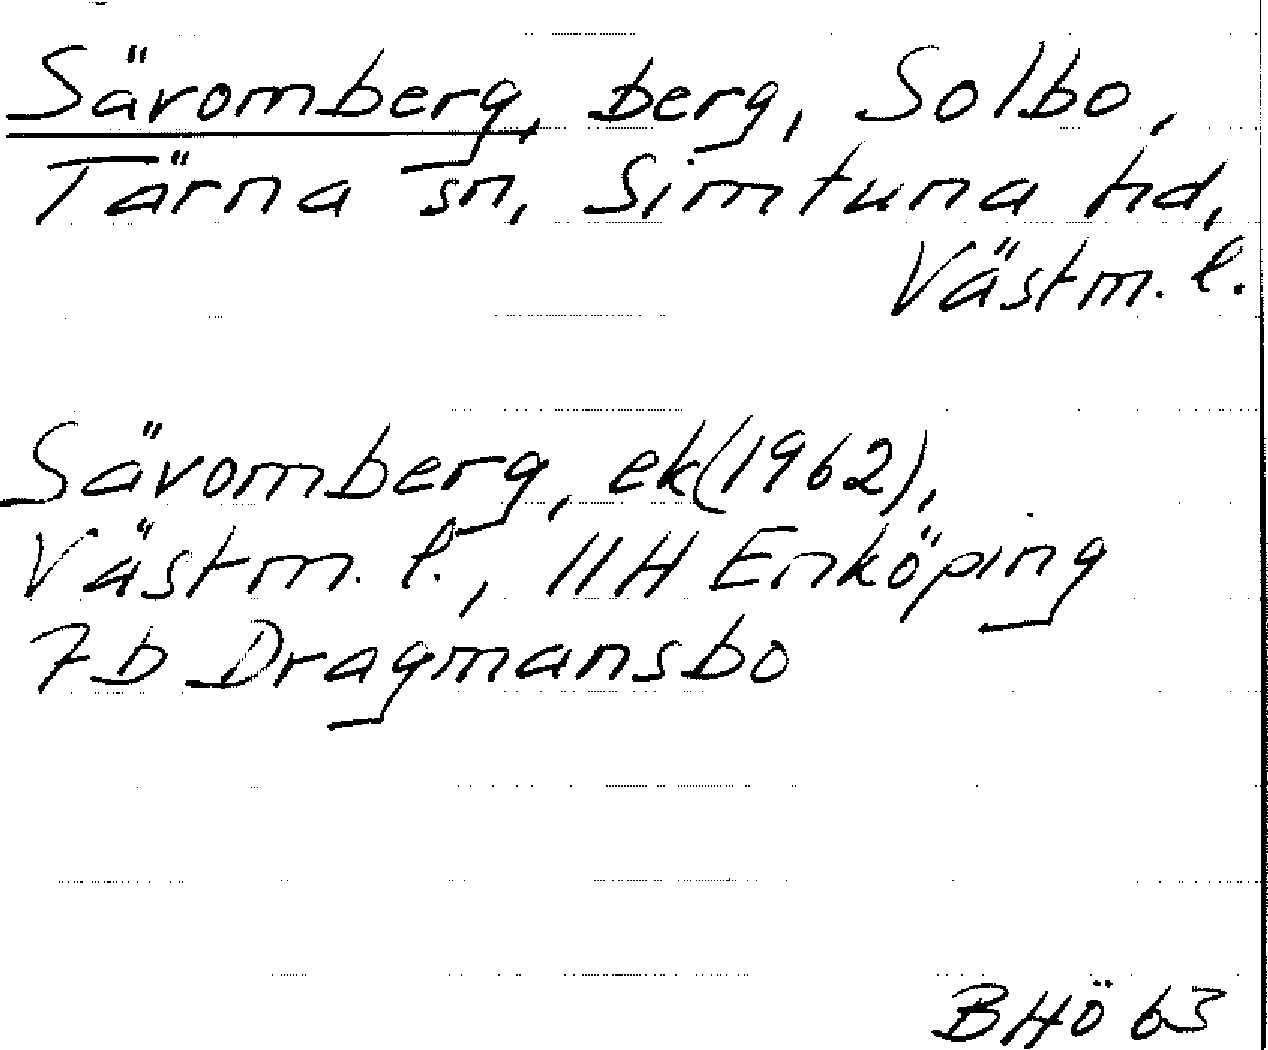 Säromberg, berg, Solbo,
Tärna sn, Simtuna hd,
Västm. l.
Säromberg, ek(1962),
Västm. l., 11H Enköping
7b Dragmansbo
BHö 63